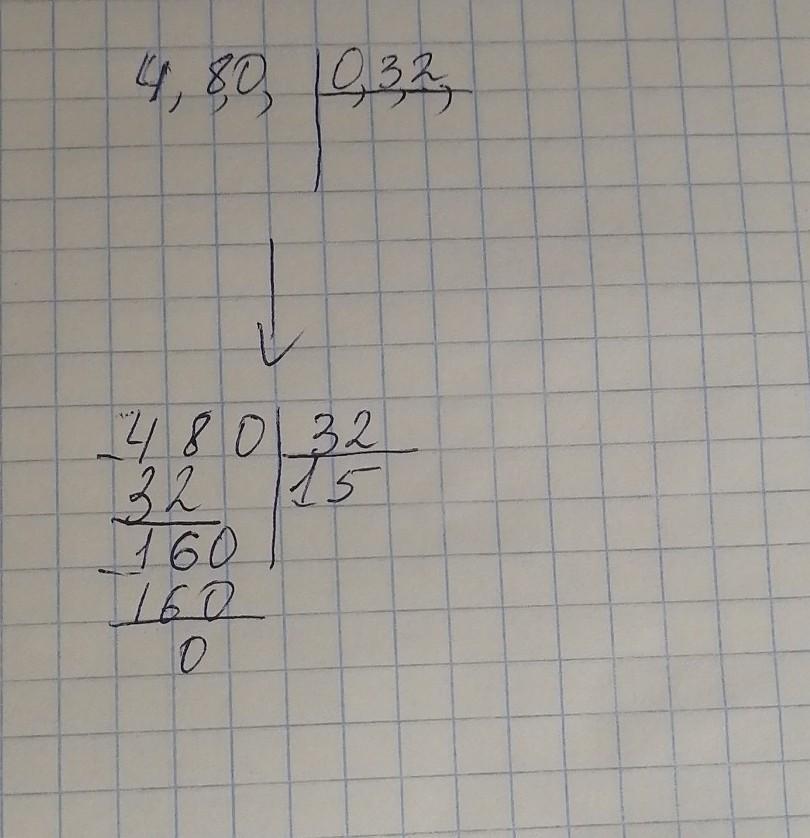 4,8,0, 0,3,2,
480 32
32 15
160
160
0